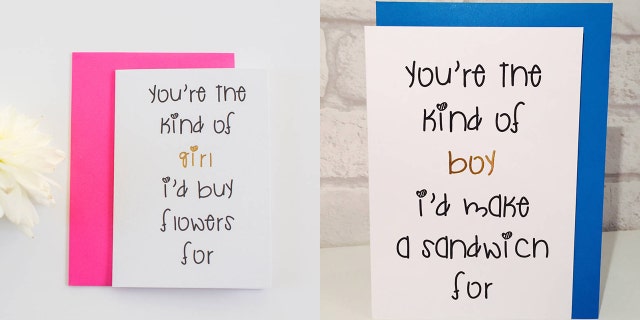 you're the
kind of
girl
i'd buy
flowers
for
you're the
kind of
boy
i'd make
a sandwich
for